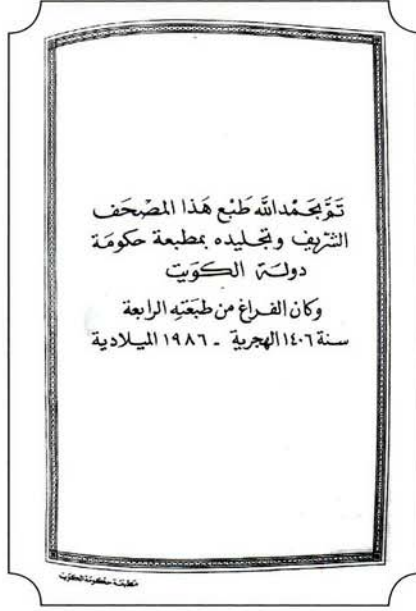 تَمَّ بحَمْد الله طَبْع هَذا المصْحَف
الشّريف وتجليده بمطبعة حكومَة
دولَـة الكوَيت
وكان الفراغ من طبعَتِه الرابعة
سنة ١٤٠٦ الهجرية - ١٩٨٦ الميلادية
مطبعَة حكومَة الكويت